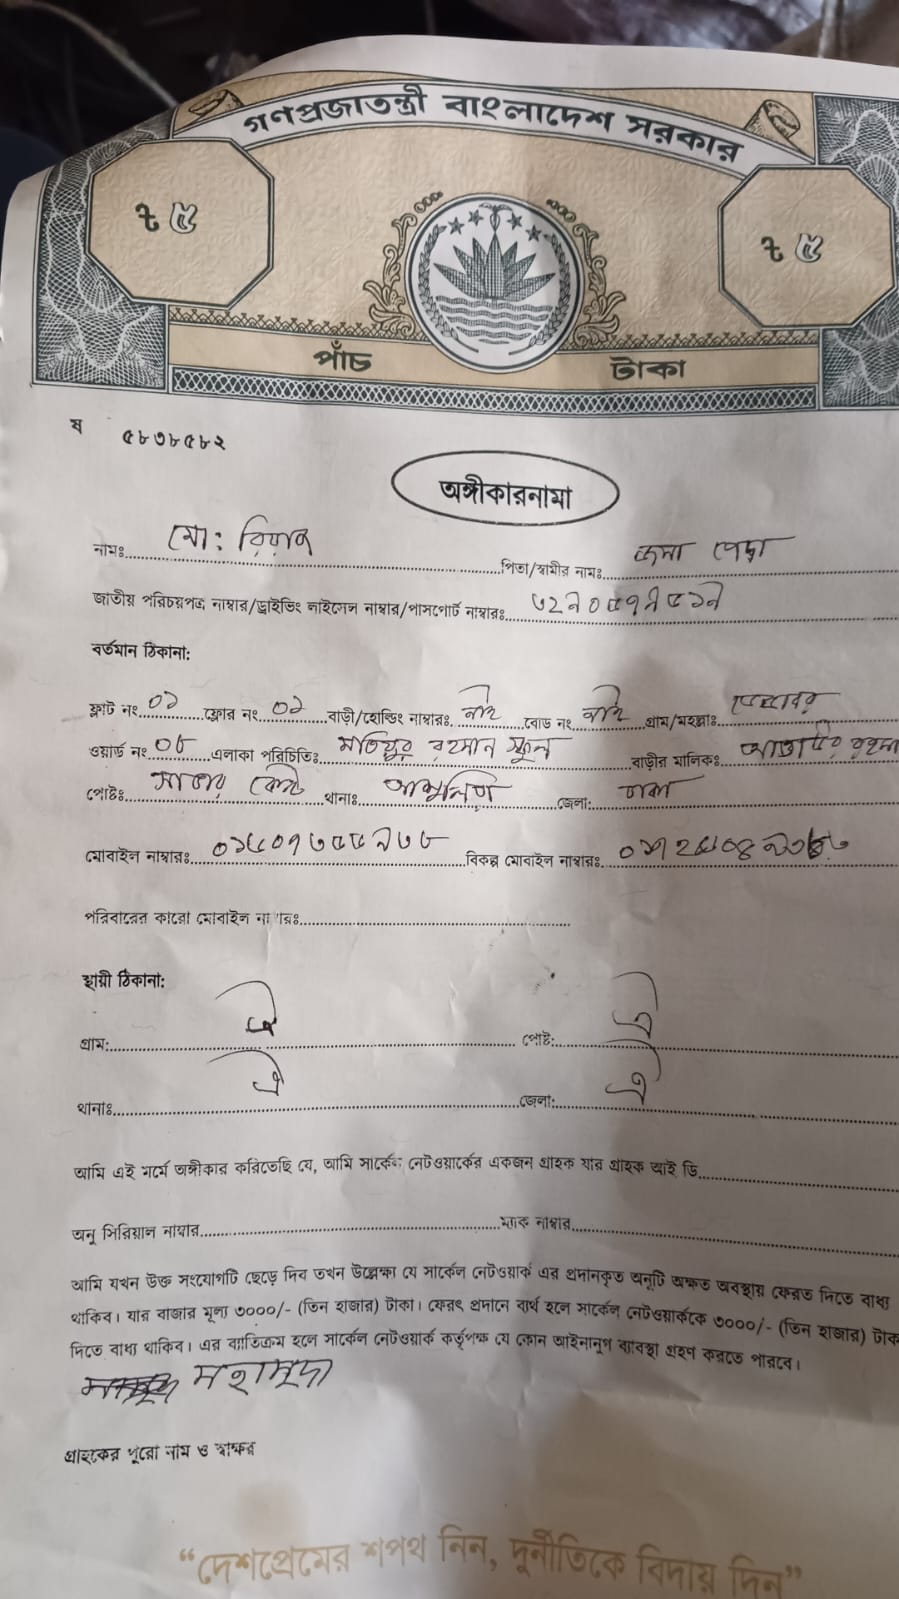 গণপ্রজাতন্ত্রী বাংলাদেশ সরকার
৳ ৫ ৳ ৫
পাঁচ টাকা
ষ ৫৮৩৮৫৮২
অঙ্গীকারনামা
নামঃ মো: রিয়াজ পিতা/স্বামীর নামঃ
জাতীয় পরিচয়পত্র নাম্বার/ড্রাইভিং লাইসেন্স নাম্বার/পাসপোর্ট নাম্বারঃ
বর্তমান ঠিকানা:
ফ্লাট নং ০১ ফ্লোর নং ০১ বাড়ী/হোল্ডিং নাম্বারঃ নাই রোড নং নাই গ্রাম/মহল্লাঃ
ওয়ার্ড নং ০৮ এলাকা পরিচিতিঃ মতিয়ুর রহমান স্কুল বাড়ীর মালিকঃ
পোষ্টঃ সাভার কেন্ট থানাঃ আশুলিয়া জেলা: ঢাকা
মোবাইল নাম্বারঃ বিকল্প মোবাইল নাম্বারঃ
পরিবারের কারো মোবাইল নাম্বারঃ
স্থায়ী ঠিকানা:
গ্রাম: ঐ পোষ্ট: ঐ
থানাঃ ঐ জেলা: ঐ
আমি এই মর্মে অঙ্গীকার করিতেছি যে, আমি সার্কেল নেটওয়ার্কের একজন গ্রাহক যার গ্রাহক আই ডি
অনু সিরিয়াল নাম্বার ম্যাক নাম্বার
আমি যখন উক্ত সংযোগটি ছেড়ে দিব তখন উল্লেক্ষা যে সার্কেল নেটওয়ার্ক এর প্রদানকৃত অনুটি অক্ষত অবস্থায় ফেরত দিতে বাধ্য
থাকিব। যার বাজার মূল্য ৩০০০/- (তিন হাজার) টাকা। ফেরৎ প্রদানে ব্যর্থ হলে সার্কেল নেটওয়ার্ককে ৩০০০/- (তিন হাজার) টাক
দিতে বাধ্য থাকিব। এর ব্যতিক্রম হলে সার্কেল নেটওয়ার্ক কর্তৃপক্ষ যে কোন আইনানুগ ব্যাবস্থা গ্রহণ করতে পারবে।
মাহামুদা
গ্রাহকের পুরো নাম ও স্বাক্ষর
“দেশপ্রেমের শপথ নিন, দুর্নীতিকে বিদায় দিন”